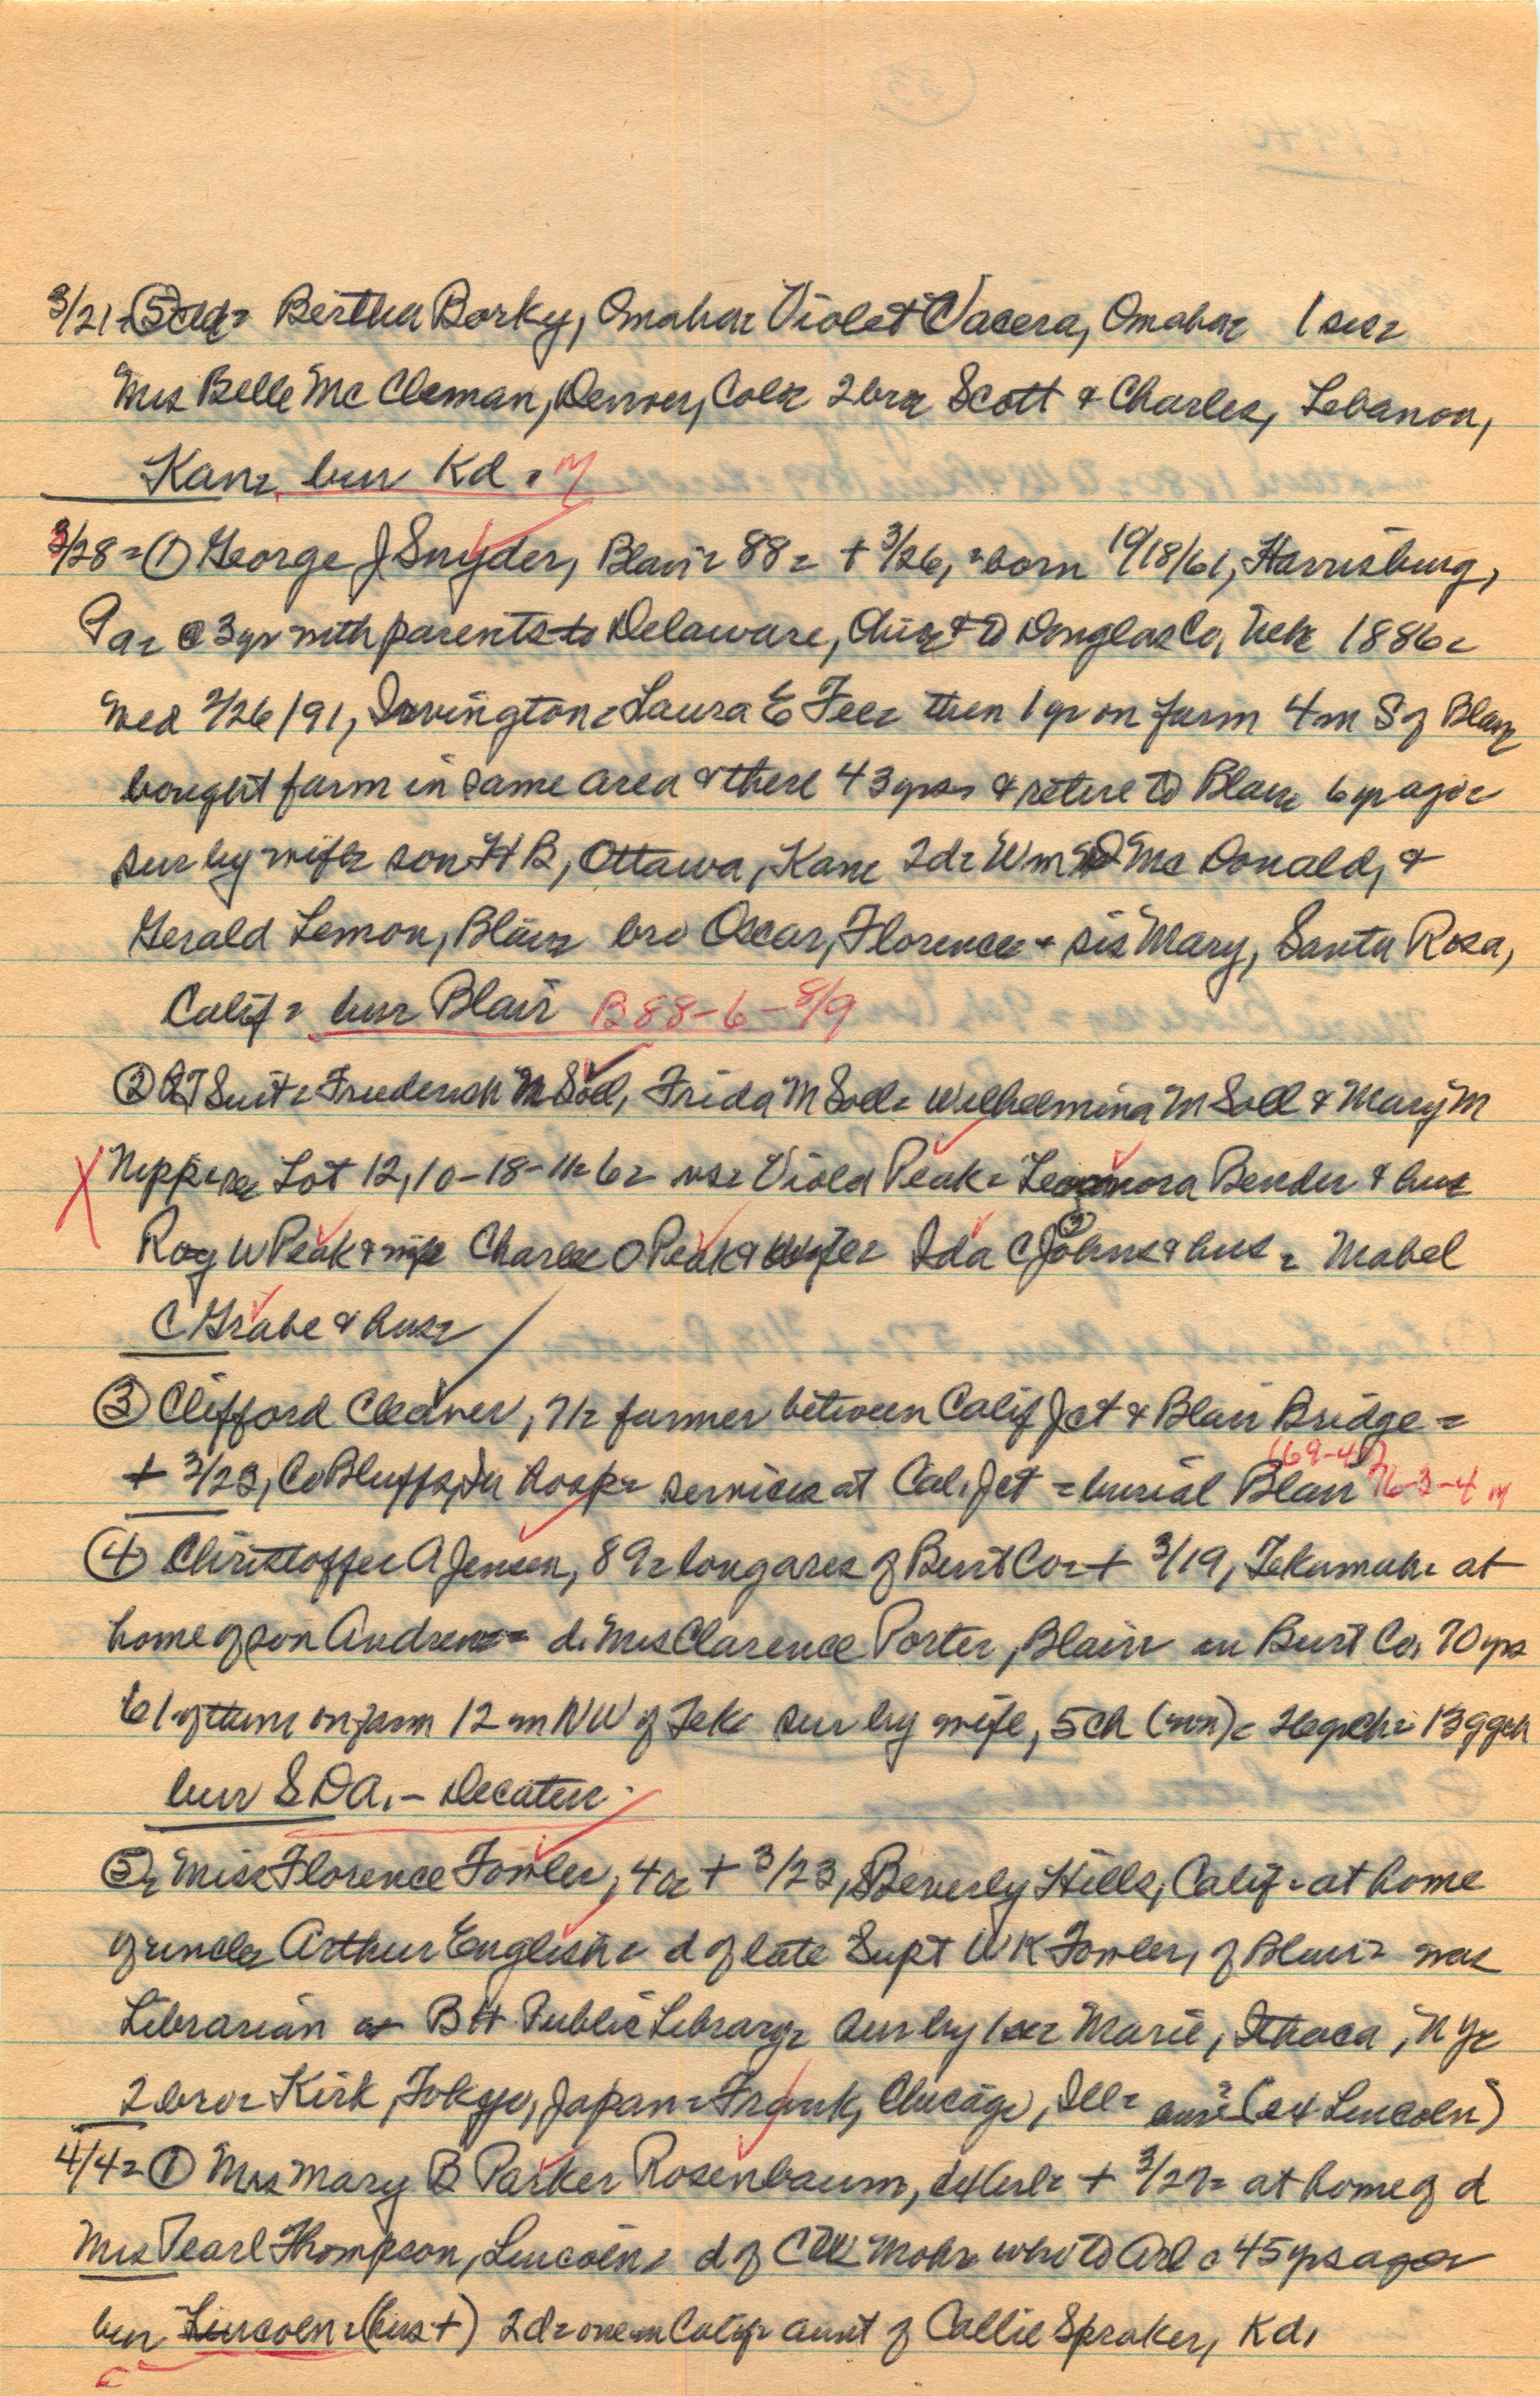 3/21 = ⑤ cld = Bertha Borky, Omaha = Violet Vacera, Omaha = 1 sis =
Mrs Belle Mc Cleman, Denver, Col = 2 br = Scott & Charles, Lebanon,
Kan = bur Kd = M
3/28 = ① George J Snyder, Blair = 88 = + 3/26, = born 10/18/61, Harrisburg,
Pa = @ 3 yr with parents to Delaware, & to Douglas Co, Neb = 1886 =
wed 2/26/91, Irvington = Laura E Fee = then 1 yr on farm 4 m S of Blair
bought farm in same area & there 43 yrs & retire to Blair 6 yr ago =
sur by wife = son H B, Ottawa, Kan = 2 d = Wm Mc Donald, &
Gerald Lemon, Blair = bro Oscar, Florence & sis Mary, Santa Rosa,
Calif = bur Blair B 88-6-8/9
② QT Suit = Frederich M Soll, Frida M Soll = Wilhelmina M Soll & Mary M
X Nipp = re Lot 12, 10-18-11 = 6 = vs = Viola Peak = Leonora Bender & hus =
Roy W Peak & wife Charles O Peak & wife = Ida C Johns & hus = Mabel
C Grabe & hus =
③ Clifford Cleaver, 71 = farmer between Calif Jct & Blair Bridge =
(69-4)
+ 3/23, Co Bluffs, Ia hosp = services at Cal. Jct = burial Blair 76-3-4 M
④ Christoffer A Jensen, 89 = long a res of Burt Co = + 3/19, Tekamah = at
home of son Andrew = d. Mrs Clarence Porter, Blair = in Burt Co, 70 yrs
61 of them on farm 12 m NW of Tek = sur by wife, 5 ch = gch = 13 ggch
bur S D A. - Decatur
⑤ = Miss Florence Fowler, + 3/23, Beverly Hills, Calif = at home
of uncle = Arthur English = d of late Supt W K Fowler, of Blair = was
Librarian at B H Public Library = sur by 1 sis = Marie, Ithaca, N Y =
2 bro = Kirk, Tokyo, Japan = Frank, Chicago, Ill = (ex Lincoln)
4/4 = ① Mrs Mary B Parker Rosenbaum, + 3/27 = at home of d
Mrs Pearl Thompson, Lincoln = d of Mohr who to Arl c 45 yrs ago =
bur Lincoln = (hus +) 2 d = one in Calif = aunt of Callie Spraker, Kd,